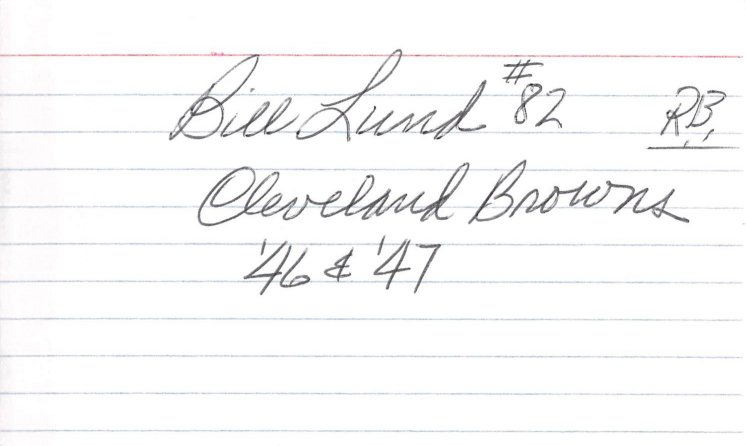 Bill Lund #82 R.B.
Cleveland Browns
'46 & '47